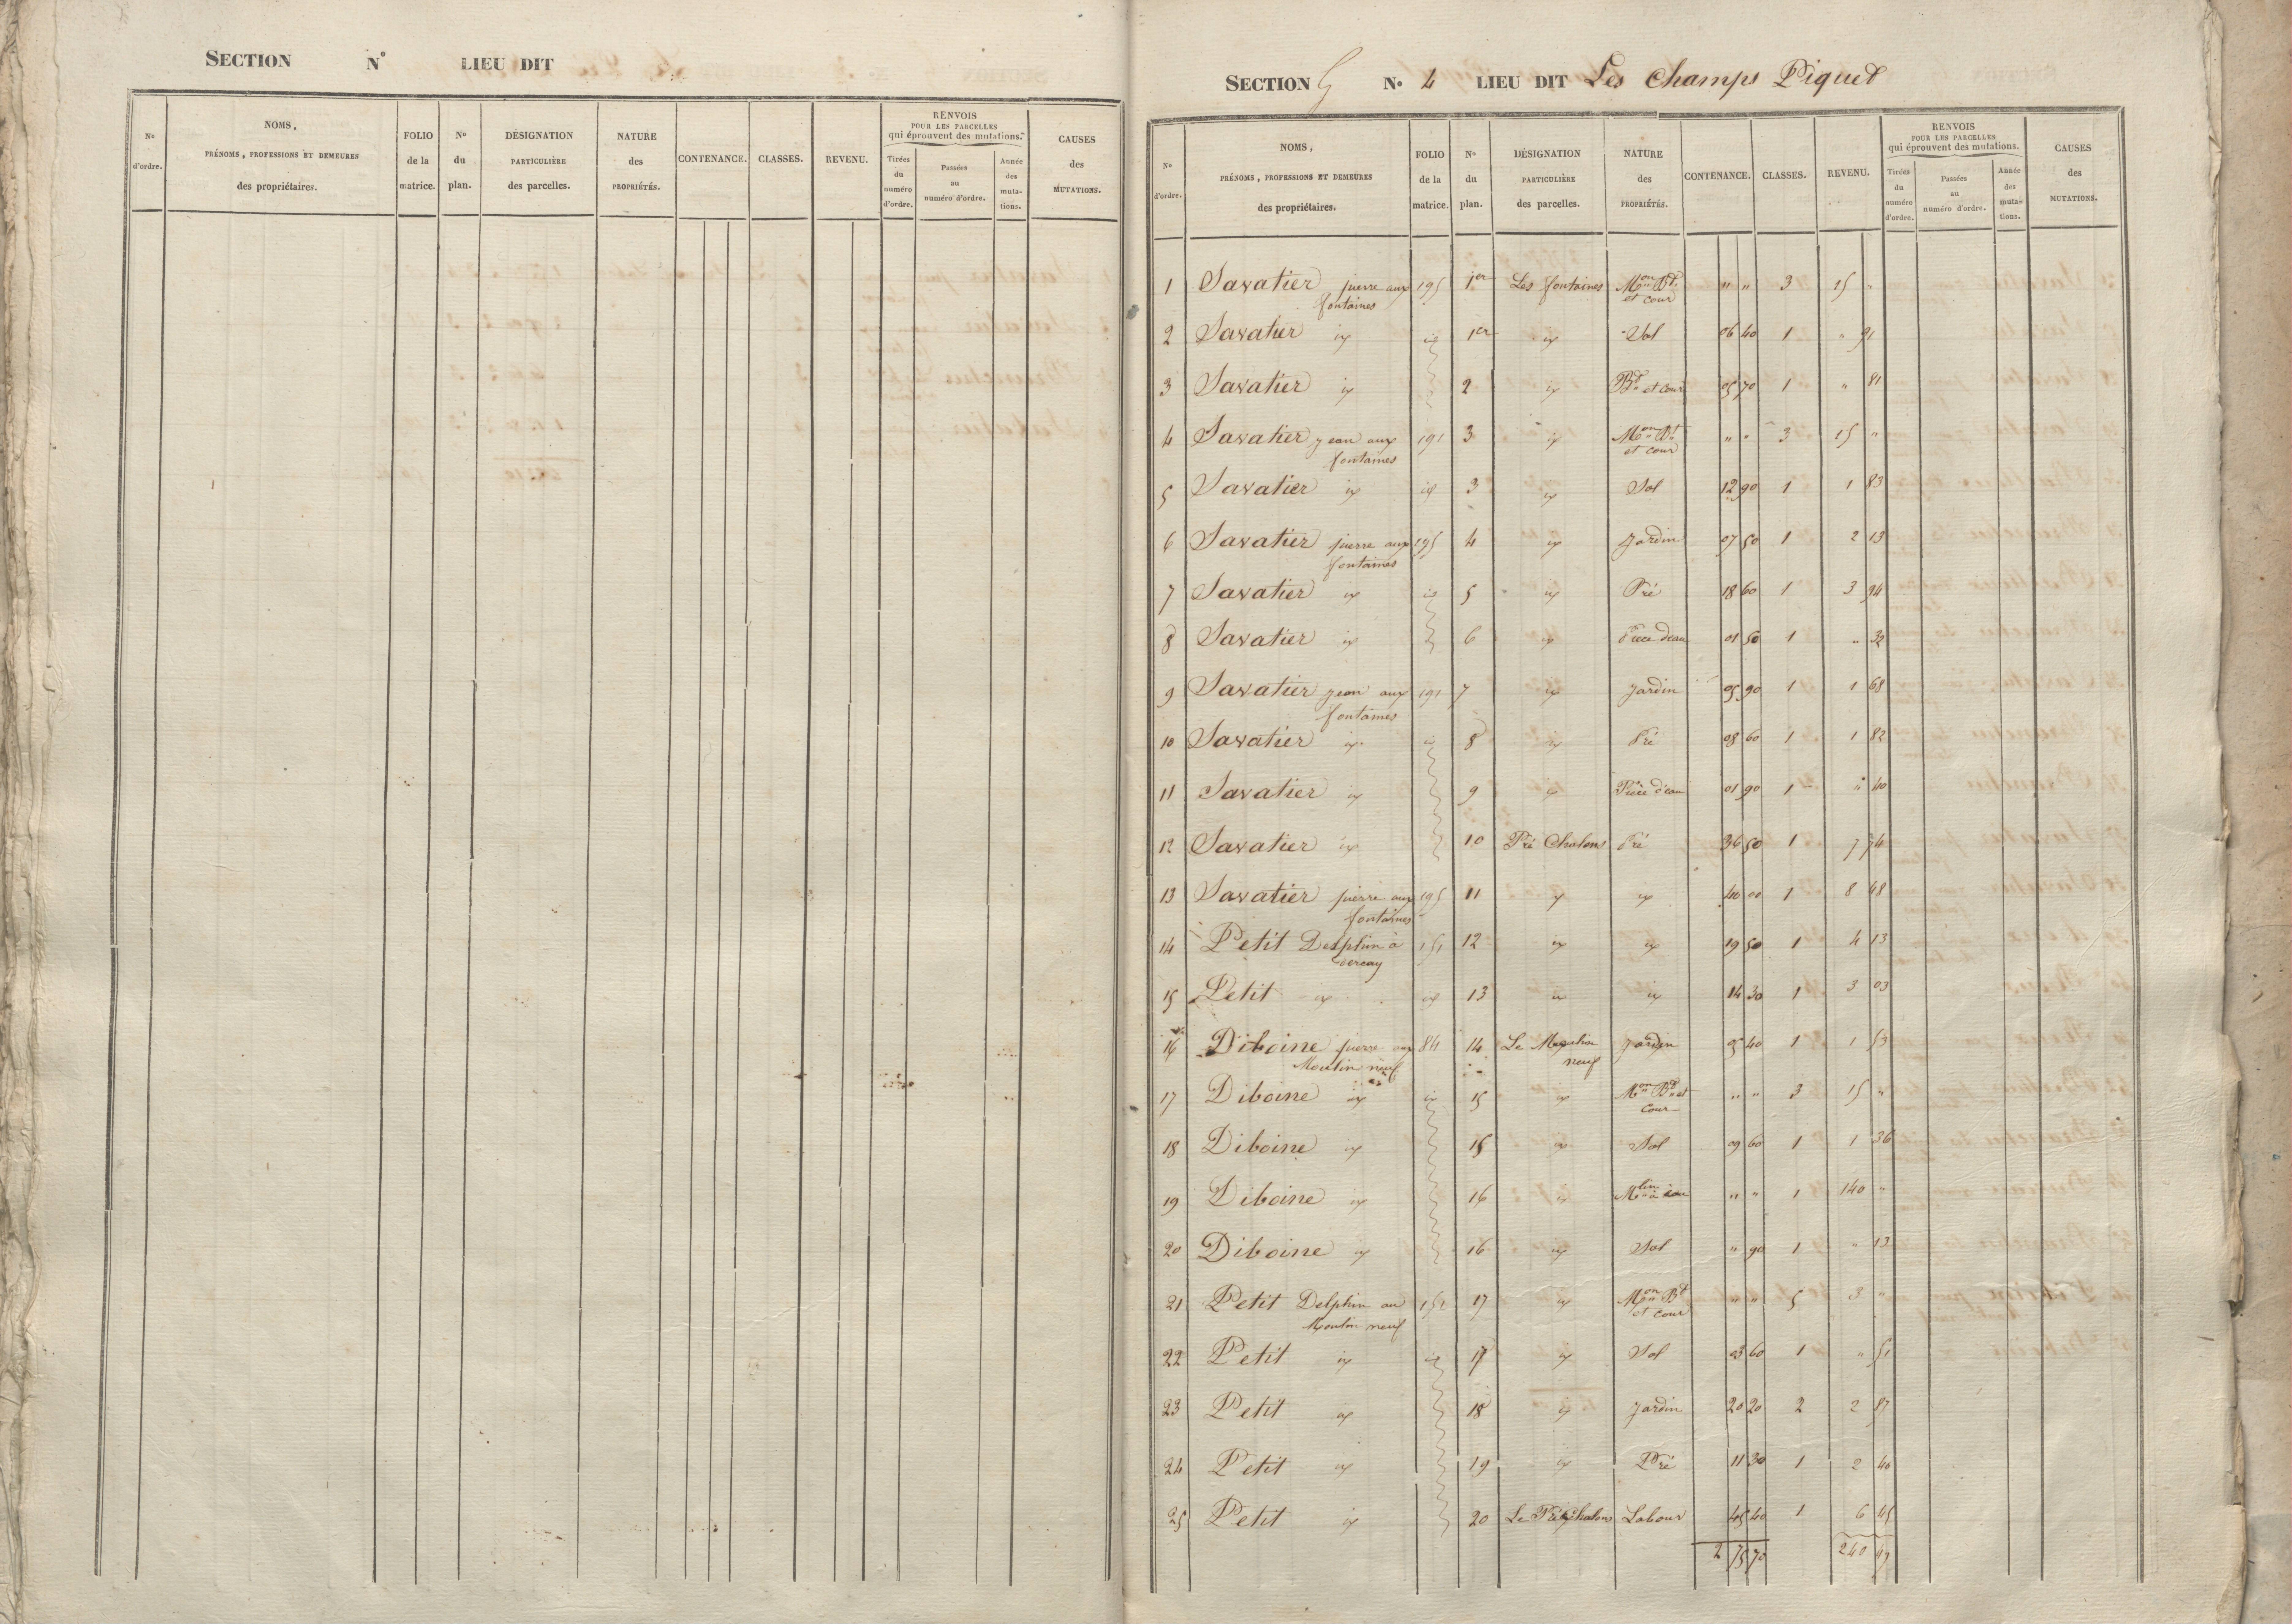 SECTION N° LIEU DIT
N° d'ordre.
NOMS, PRÉNOMS, PROFESSIONS ET DEMEURES des propriétaires.
FOLIO de la matrice.
N° du plan.
DÉSIGNATION PARTICULIÈRE des parcelles.
NATURE des PROPRIÉTÉS.
CONTENANCE.
CLASSES.
REVENU.
RENVOIS POUR LES PARCELLES qui éprouvent des mutations.
Tirées du numéro d'ordre.
Passées au numéro d'ordre.
Année des mutations.
CAUSES des MUTATIONS.
SECTION G N° 4 LIEU DIT Les Champs Piquet
N° d'ordre.
NOMS, PRÉNOMS, PROFESSIONS ET DEMEURES des propriétaires.
FOLIO de la matrice.
N° du plan.
DÉSIGNATION PARTICULIÈRE des parcelles.
NATURE des PROPRIÉTÉS.
CONTENANCE.
CLASSES.
REVENU.
RENVOIS POUR LES PARCELLES qui éprouvent des mutations.
Tirées du numéro d'ordre.
Passées au numéro d'ordre.
Année des mutations.
CAUSES des MUTATIONS.
1 Savatier pierre aux fontaines 195 1er Les fontaines Mon Bt et cour " " 3 15 "
2 Savatier id id 1er id Sol 06 40 1 " 91
3 Savatier id 2 id Bt et cour 05 70 1 " 81
4 Savatier jean aux fontaines 191 3 id Mon Bt et cour " " 3 15 "
5 Savatier id id 3 id Sol 12 90 1 1 83
6 Savatier pierre aux fontaines 195 4 id Jardin 07 50 1 2 13
7 Savatier id id 5 id Pré 18 60 1 3 94
8 Savatier id 6 id Pièce d'eau 01 50 1 " 32
9 Savatier jean aux fontaines 191 7 id Jardin 05 90 1 1 68
10 Savatier id id 8 id Pré 08 60 1 1 82
11 Savatier id 9 id Pièce d'eau 01 90 1 " 40
12 Savatier id 10 Pré Chalons Pré 36 50 1 7 74
13 Savatier pierre aux fontaines 195 11 id id 40 00 1 8 48
14 Petit Delphin à dercay 151 12 id id 19 50 1 4 13
15 Petit id id 13 id id 14 30 1 3 03
16 Diboine pierre au Moulin neuf 84 14 Le Moulin neuf Jardin 05 40 1 1 53
17 Diboine id id 15 id Mon Bt et cour " " 3 15 "
18 Diboine id 15 id Sol 09 60 1 1 36
19 Diboine id 16 id Mlin à eau " " 1 140 "
20 Diboine id 16 id Sol " 90 1 " 13
21 Petit Delphin au Moulin neuf 151 17 id Mon Bt et cour " " 5 3 "
22 Petit id id 17 id Sol 03 60 1 " 51
23 Petit id 18 id Jardin 20 20 2 2 87
24 Petit id 19 id Pré 11 30 1 2 40
25 Petit id 20 Le Pré Chalons Labour 45 40 1 6 45
2 75 70 240 47